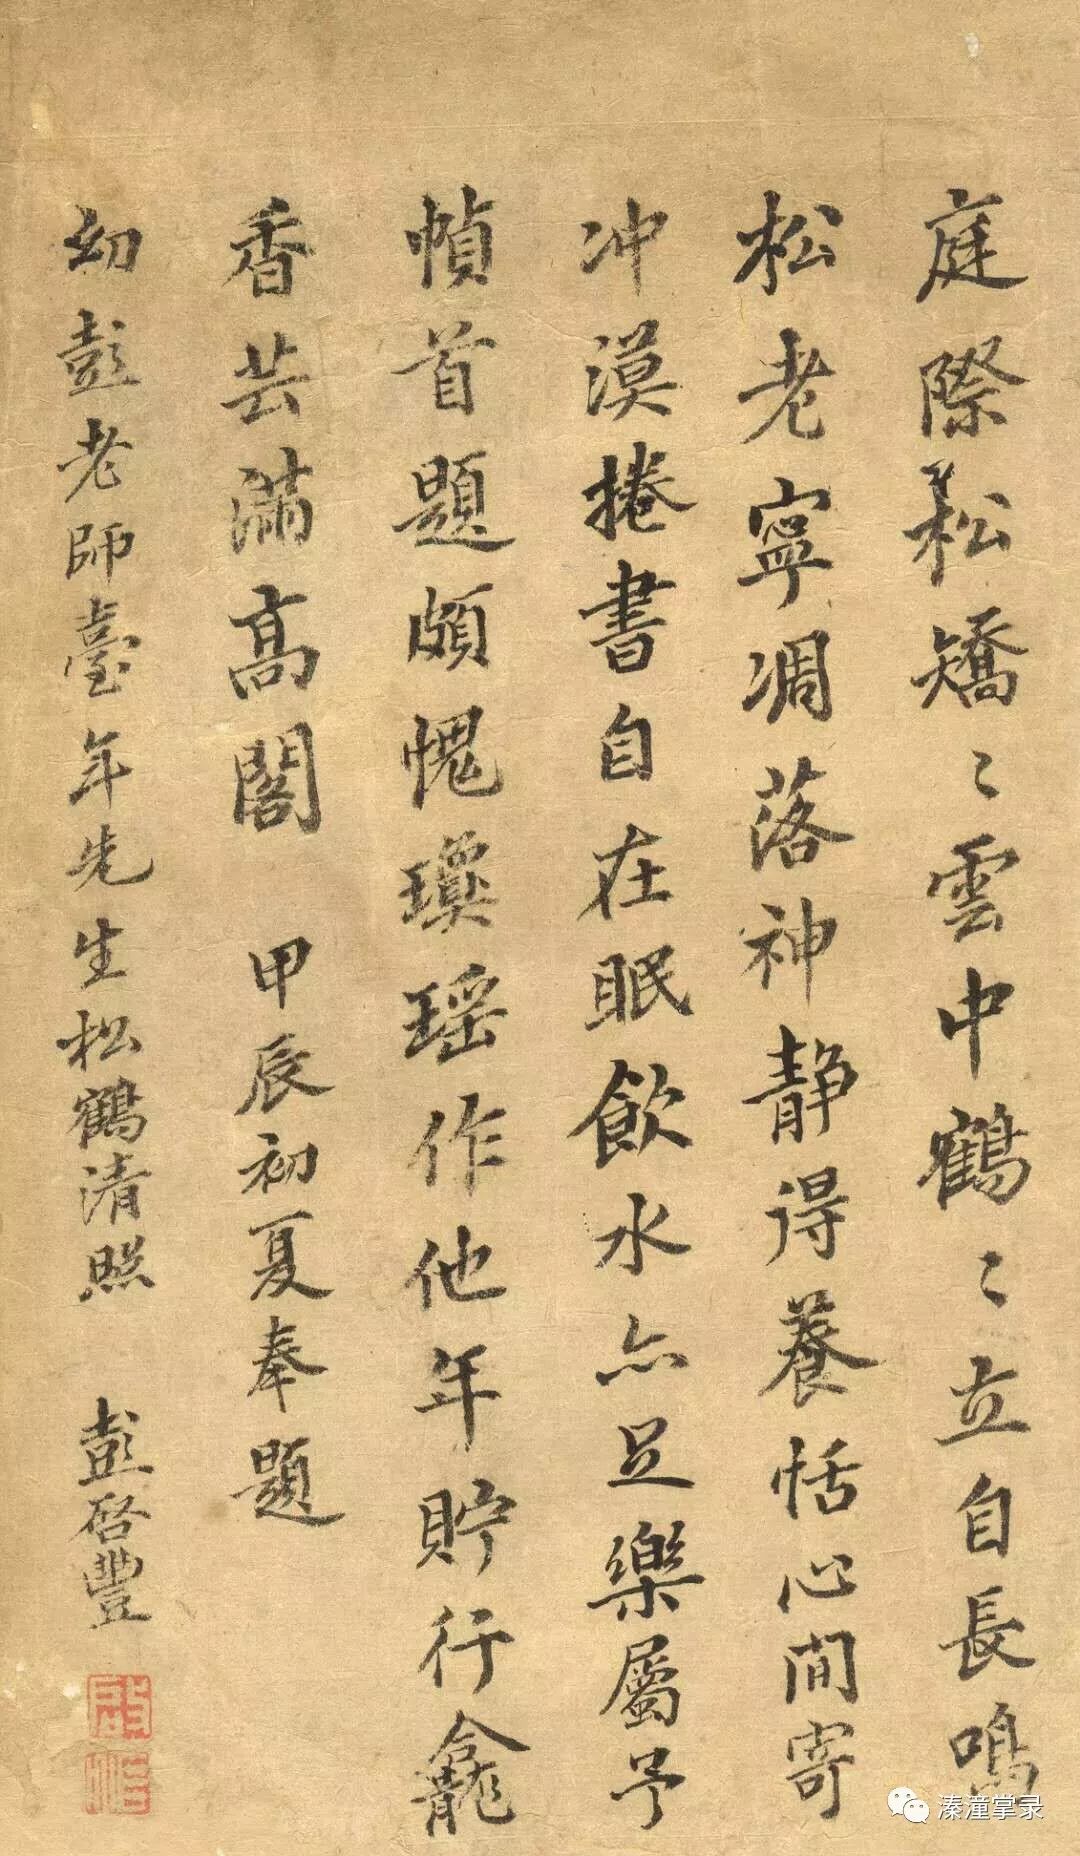 庭際松矯〻雲中鶴〻立自長鳴
松老寧凋落神静得養恬心閒寄
冲漠捲書自在眠飲水亦足樂屬予
幀首題頗愧瓊瑶作他年貯行龕
香芸滿高閣 甲辰初夏奉題
幼彭老師臺年先生松鶴清照 彭啓豐
溱潼掌录